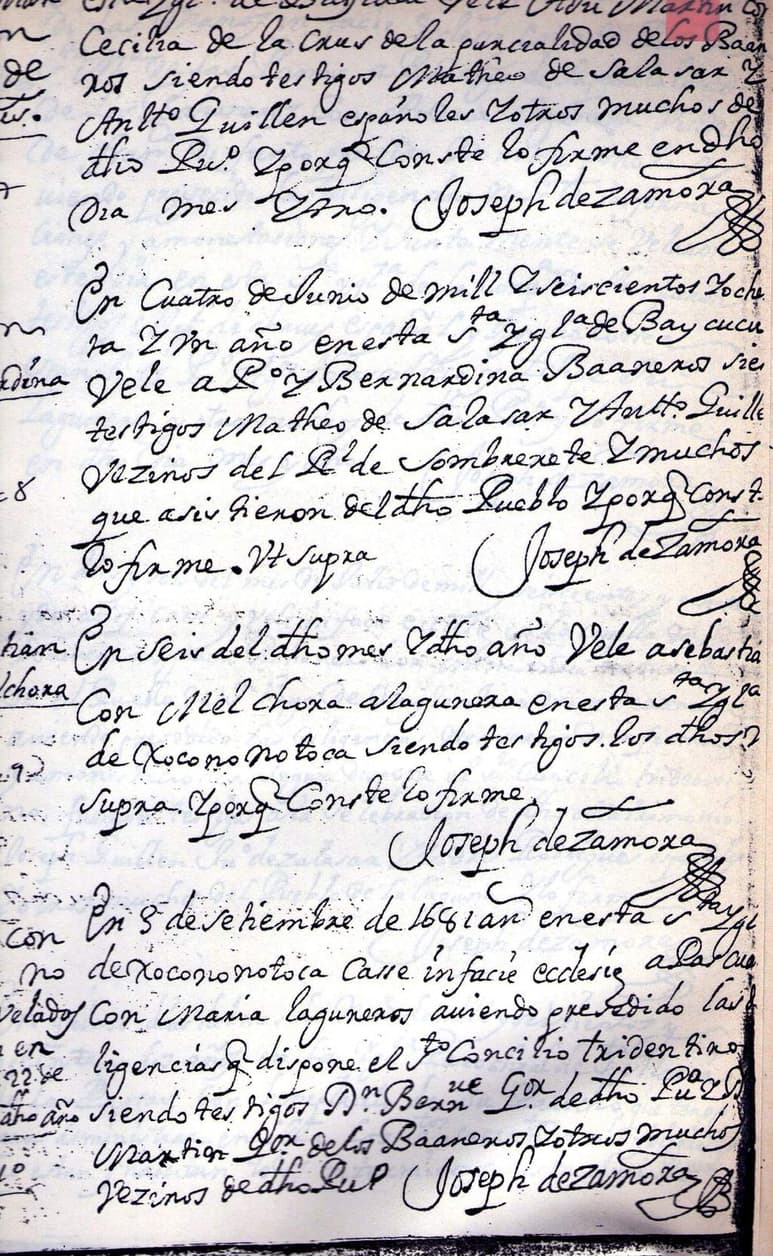 Cecilia de la Crus de la parcialidad de los Baan
ros siendo testigos Matheo de Salasar Y
Antto Guillen españoles Y otros muchos de
dho Puo. Y porq Conste lo firme en dho
Dia mes Y Año. Joseph de Zamora
En Cuatro de Junio de mill Y seiscientos Y oche
ta Y Vn año en esta sta Ygla de Baycucu
Vele a Po Y Bernardina Baaneros sie
testigos Matheo de Salasar Y Antto Guille
Vezinos del Rl de Sombrerete Y muchos
que asistieron del dho Pueblo Y porq Const
lo firme. Vt supra Joseph de Zamora
En seis del dho mes Y dho año Vele a sebastia
Con Melchora alagunera en esta sta Ygla
de Xocononotoca siendo testigos. los dhos
supra Y porq Conste lo firme
Joseph de Zamora
En 5 de Setiembre de 1681 an en esta sta Ygl
de Xocononotoca Casse in facie ecclesie a Pascua
Con Maria laguneros auiendo presedido las
ligencias q dispone el sto Concilio tridentino
siendo testigos Dn. Bernue Gor. de dho Pu Y D
Martin Gor de los Baaneros Y otros muchos
Vezinos de dho Pul Joseph de Zamora
rdina
8
chora
9
Con
no
Velados
en
22 de
dho año